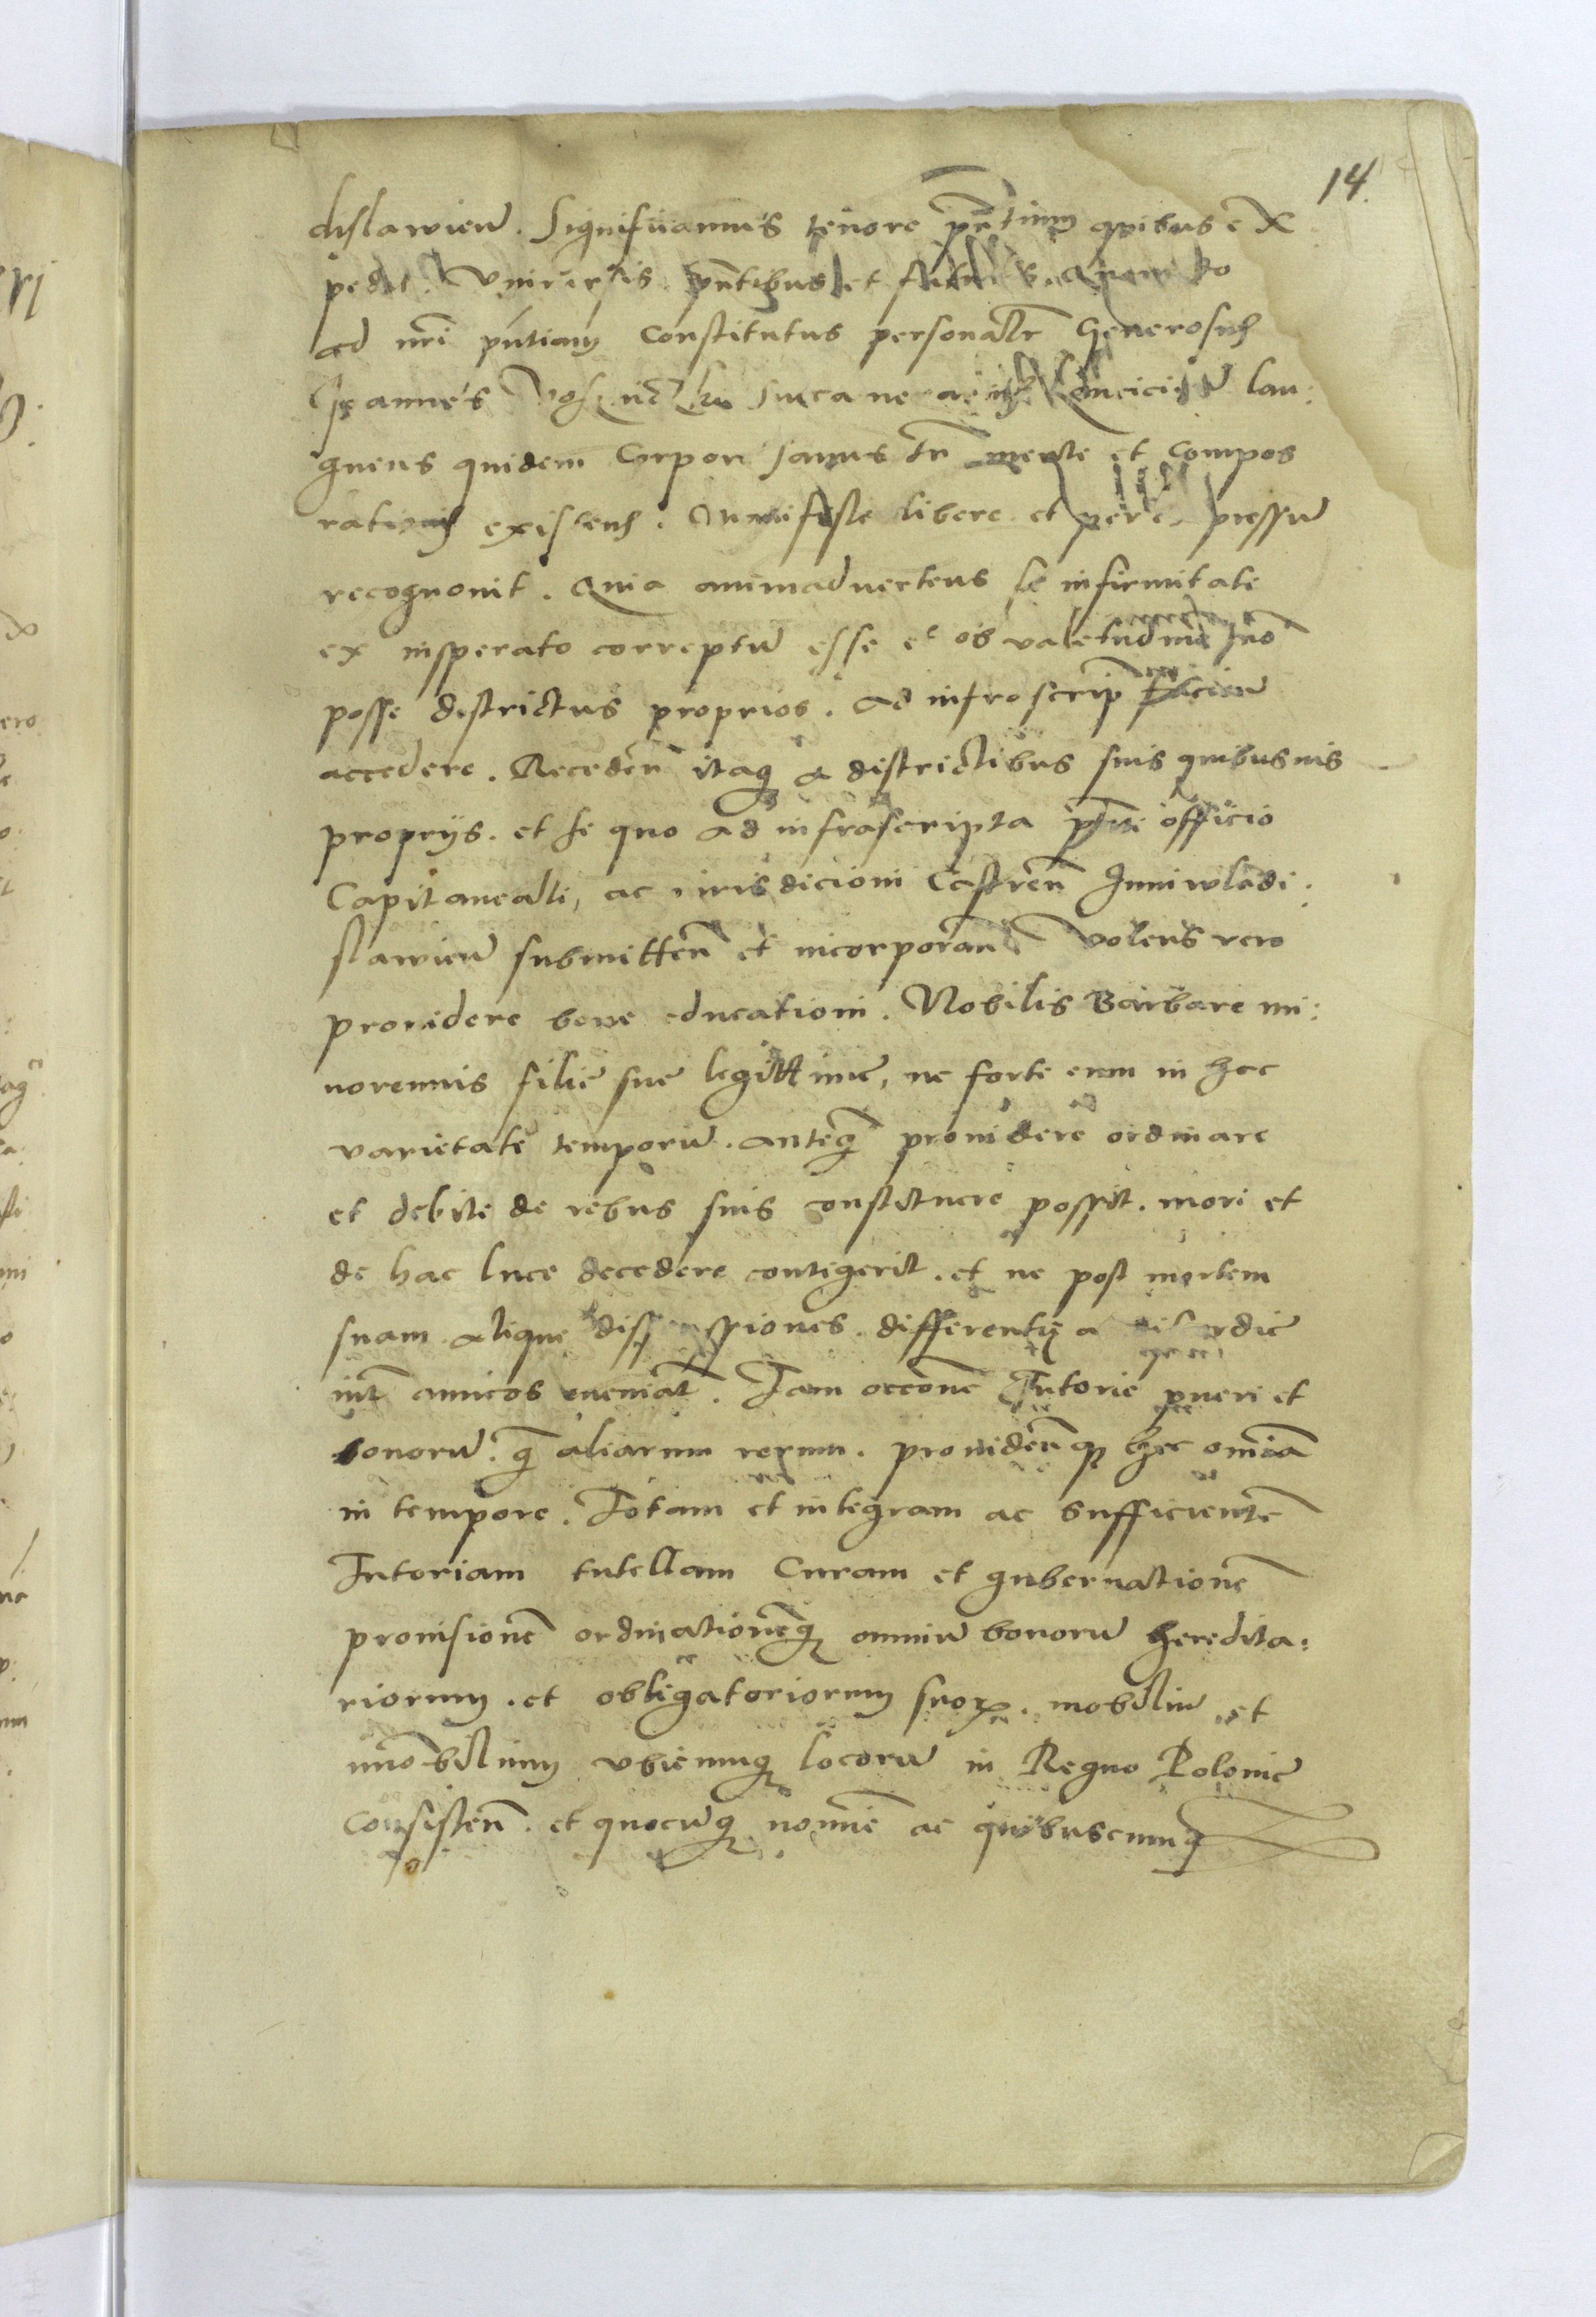 14.
dislawien̄. Significamus tenore pn̄tium quibus ex
pedit. Universis pn̄tibus et futuris. Quomodo
ad nr̄i pn̄tiam Constitutus personalr̄ Generosus
Joannes lan:
guens quidem Corpori sanus tn̄ mente et Compos
rationis existens. Manifeste libere et per expressum
recognovit. Quia animadvertens se infirmitate
ex insperato correptū esse et ob valetudinē nō
posse districtus proprios. ad infrascrip̄
accedere. Recedēn itaq̨ a districtibus suis quibusvis
proprijs. et se quo ad infrascripta pn̄ti officio
Capitaneali, ac iurisdicioni Castren̄ Juniwladi:
slawien̄ submitten̄ et incorporan̄ Volens vero
providere bone educationi. Nobilis Barbare mi:
norennis filie sue legittime, ne forte eum in hac
varietate temporū. anteq̄ providere ordinare
et debite de rebus suis constituere possit. mori et
de hac luce decedere contigerit. et ne post mortem
suam alique dissenssiones. differentię a discordie
int̄ amicos eveniāt. Tam occōne Tutorie pueri et
bonorū. q̄ aliarum rerum. providēn q̨ hec omīa
in tempore. Totam et integram ac sufficientē
Tutoriam tutellam Curam et gubernationē
provisionē ordinationēq̨ omniū bonorū heredita:
riorum. et obligatoriorum suoꝝ. mobiliū et
imōbilium ubicunq̨ locorū in Regno Polonie
Consisten̄. et quocūq̨ nomīe ac quibuscumq̨